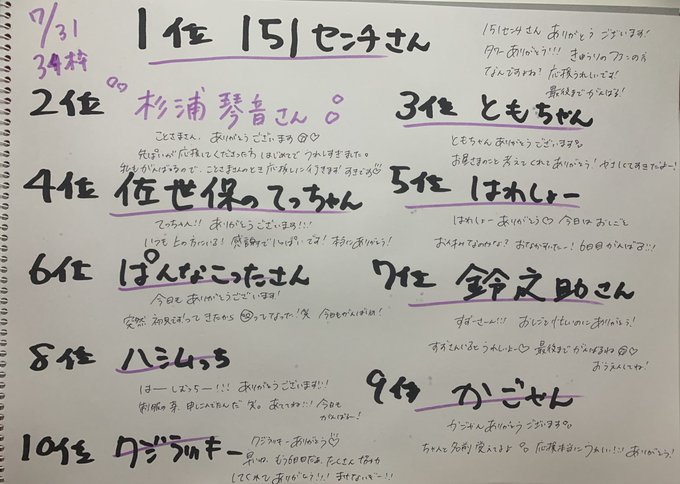 7/31
34枠
1位 151センチさん
151センチさん ありがとう ございます!
タワーありがとう!!! きゅうりのファンの方
なんですよね? 応援うれしいです!
最後までがんばる!
2位 杉浦琴音さん
ことさまさん、ありがとうございます♡
先ぱいが応援してくださった方 はじめてで うれしすぎました。
私もがんばるので、ことさまさんのとき 応援しに行きます! すきです♡
3位 ともちゃん
ともちゃん ありがとうございます。
お昼さまのこと 考えてくれてありがとう! やさしくてすきだよー!
4位 佐世保のてっちゃん
てっちゃん!! ありがとうございます!!!
いつも上の方にいる! 感謝でいっぱいです! 本当にありがとう!
5位 はれしょー
はれしょー ありがとう♡ 今日は おしごと
お休みなのかな? おなかすいたー! 6日目がんばる!!!
6位 ぱんなこったさん
今日も ありがとうございます!
突然 初見です!って きたから ってなった! 笑 今日もがんばるね!
7位 鈴之助さん
すずさーん!!! おしごと忙しいのにありがとう!
すずさんいると うれしいよー♡ 最後までがんばるね♡
おうえんしてね!
8位 ハシムっち
はーしむっちー!!! ありがとうございます!!!
制服の事、申しこんでたんだ 笑。あててね!!! 今日も
がんばるー!
9位 かごやん
かごやん ありがとうございます。
ちゃんと名前 覚えてるよ 。応援本当にうれしい!!! ありがとう!
10位 クジラッキー
クジラッキー ありがとう♡
早いね、もう6日目だね。たくさん
してくれて ありがとう!!! まけないぞー!!